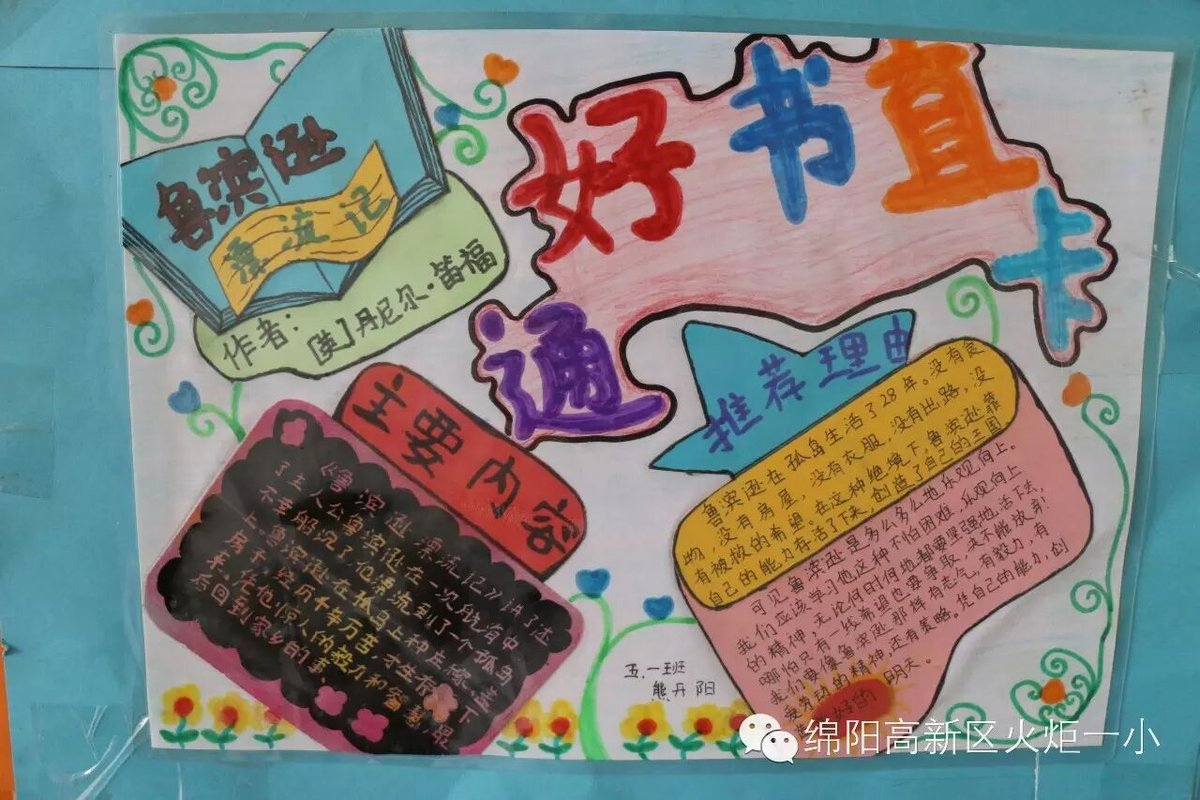 鲁滨逊
漂流记
作者：
[英]丹尼尔·笛福
好书直
通卡
主要内容
《鲁滨逊漂流记》讲了述
了主人公鲁滨逊在一次航海中
不幸
了他漂流到了一个孤岛
上。鲁滨逊在孤岛上种庄稼、盖下
房子，经历千辛万苦，求生存
来，他他惊人的毅力和智慧，最
后回到家乡的事。
推荐理由
鲁滨逊在孤岛生活了28年。没有食
物，没有房屋，没有衣服，没有出路，没
有被救的希望。在这种绝境下，鲁滨逊靠
自己的能力存活了下来，创造了自己的王国
可见鲁滨逊是多么多么地乐观向上。
我们应该学习他这种不怕困难，乐观向上
的精神，无论何时何地都要坚强地活下去，
哪怕只有一线希望也要争取，决不能放弃！
我们要像鲁滨逊那样有志气，有毅力，有
爱劳动的精神，还有策略。凭自己的能力创
好的明天。
五.一班
熊丹阳
绵阳高新区火炬一小